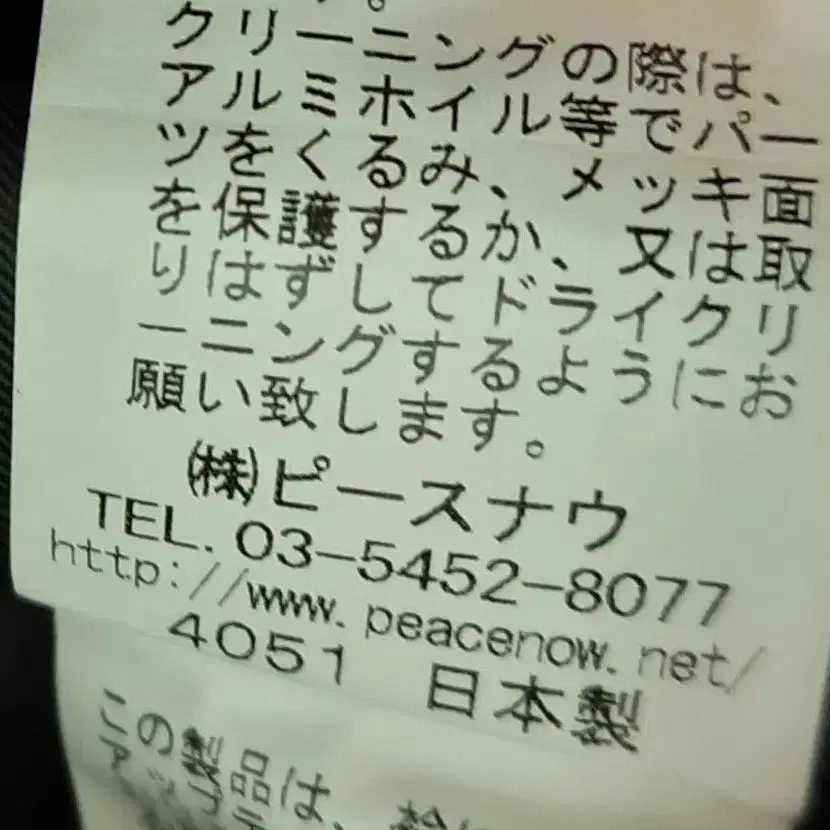 クリーニングの際は、
アルミホイル等でパー
ツをくるみ、メッキ面
を保護するか、又は取
りはずしてドライクリ
ーニングするようにお
願い致します。
㈱ピースナウ
TEL. 03-5452-8077
http://www.peacenow.net/
4051 日本製
この製品は、